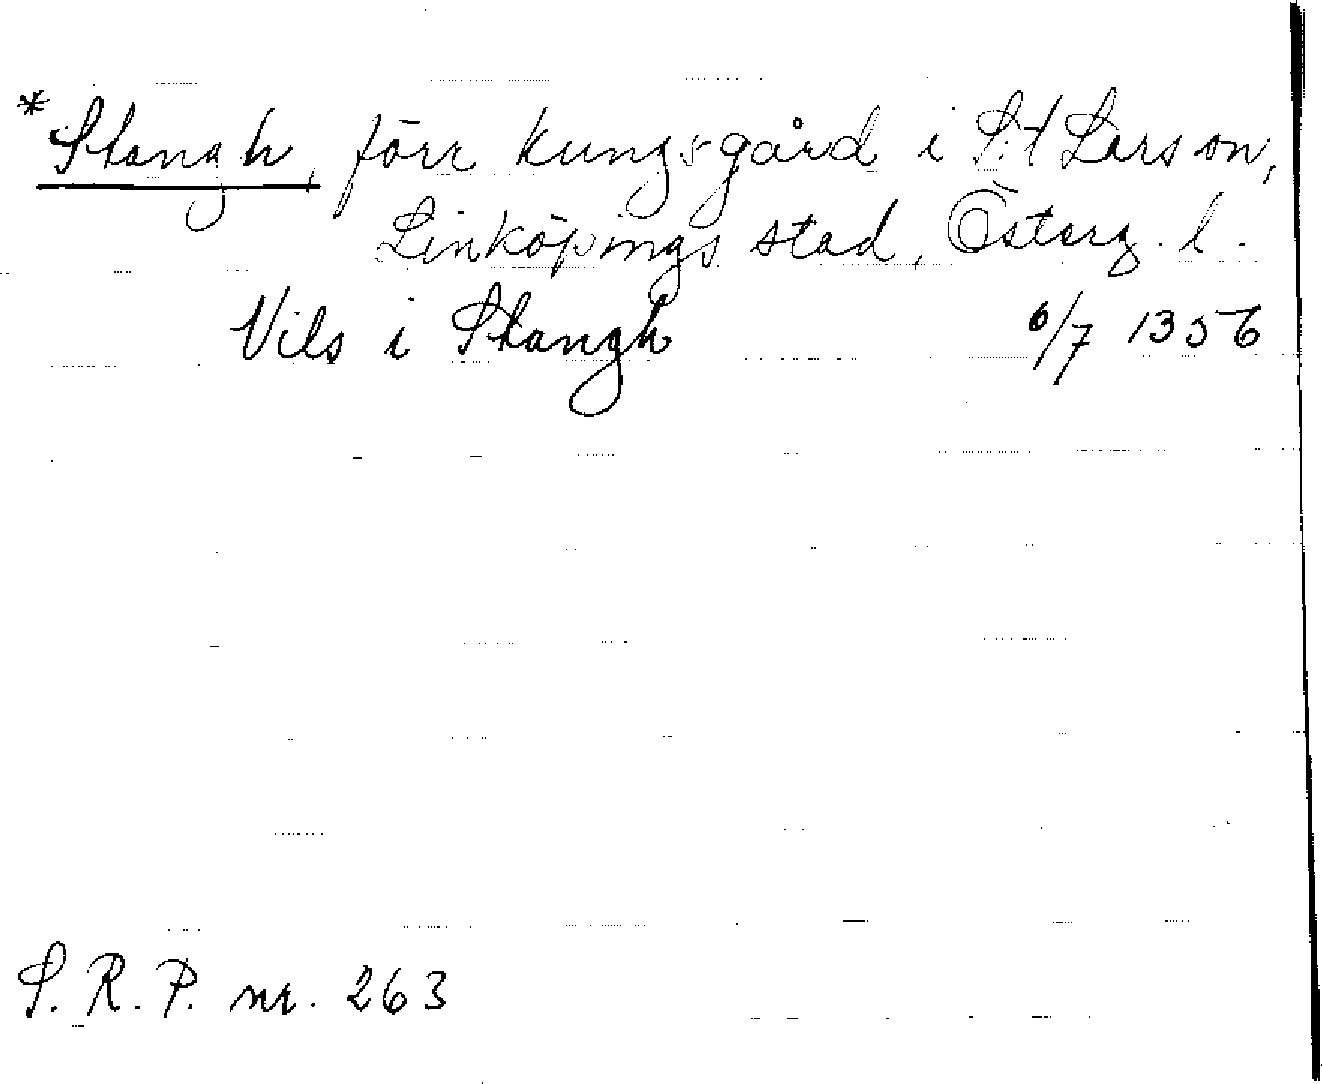 *Stangh, förr kungsgård i S:t Larson,
Linköpings stad, Österg. l.
Vils i Stangh 6/7 1356
S. R. P. nr. 263